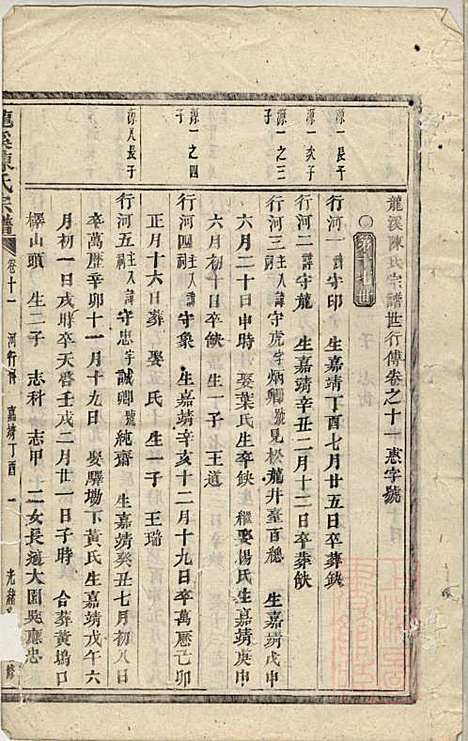 龍溪陳氏宗譜世行傳卷之十一惠字號
源一長子
行河一 諱守印 生嘉靖丁酉七月廿五日卒葬缺
源一次子
行河二 諱守龍 生嘉靖辛丑二月十二日卒葬缺
源一之三子
行河三 主入祠 諱守虎字炳卿號見松龍井臺百穗 生嘉靖戊申
六月二十日申時 娶葉氏生卒缺 繼娶楊氏生嘉靖庚申
六月初十日卒缺 生一子 王道
源一之四子
行河四 主入祠 諱守象 生嘉靖辛亥十二月十九日卒萬歷己卯
正月十六日葬 娶 氏 生一子 王瑞
源八長子
行河五 主入祠 諱守忠字誠卿號純齋 生嘉靖癸丑七月初八日
卒萬歷辛卯十一月十九日 娶驛坳下黃氏生嘉靖戊午六
月初一日戌時卒天啓壬戌二月廿一日子時 合葬黃塢口
樟山頭 生二子 志科 志甲 一女長適大園吳應忠
龍溪陳氏宗譜 卷十一 河行傳 嘉靖丁酉 一 光緒 修